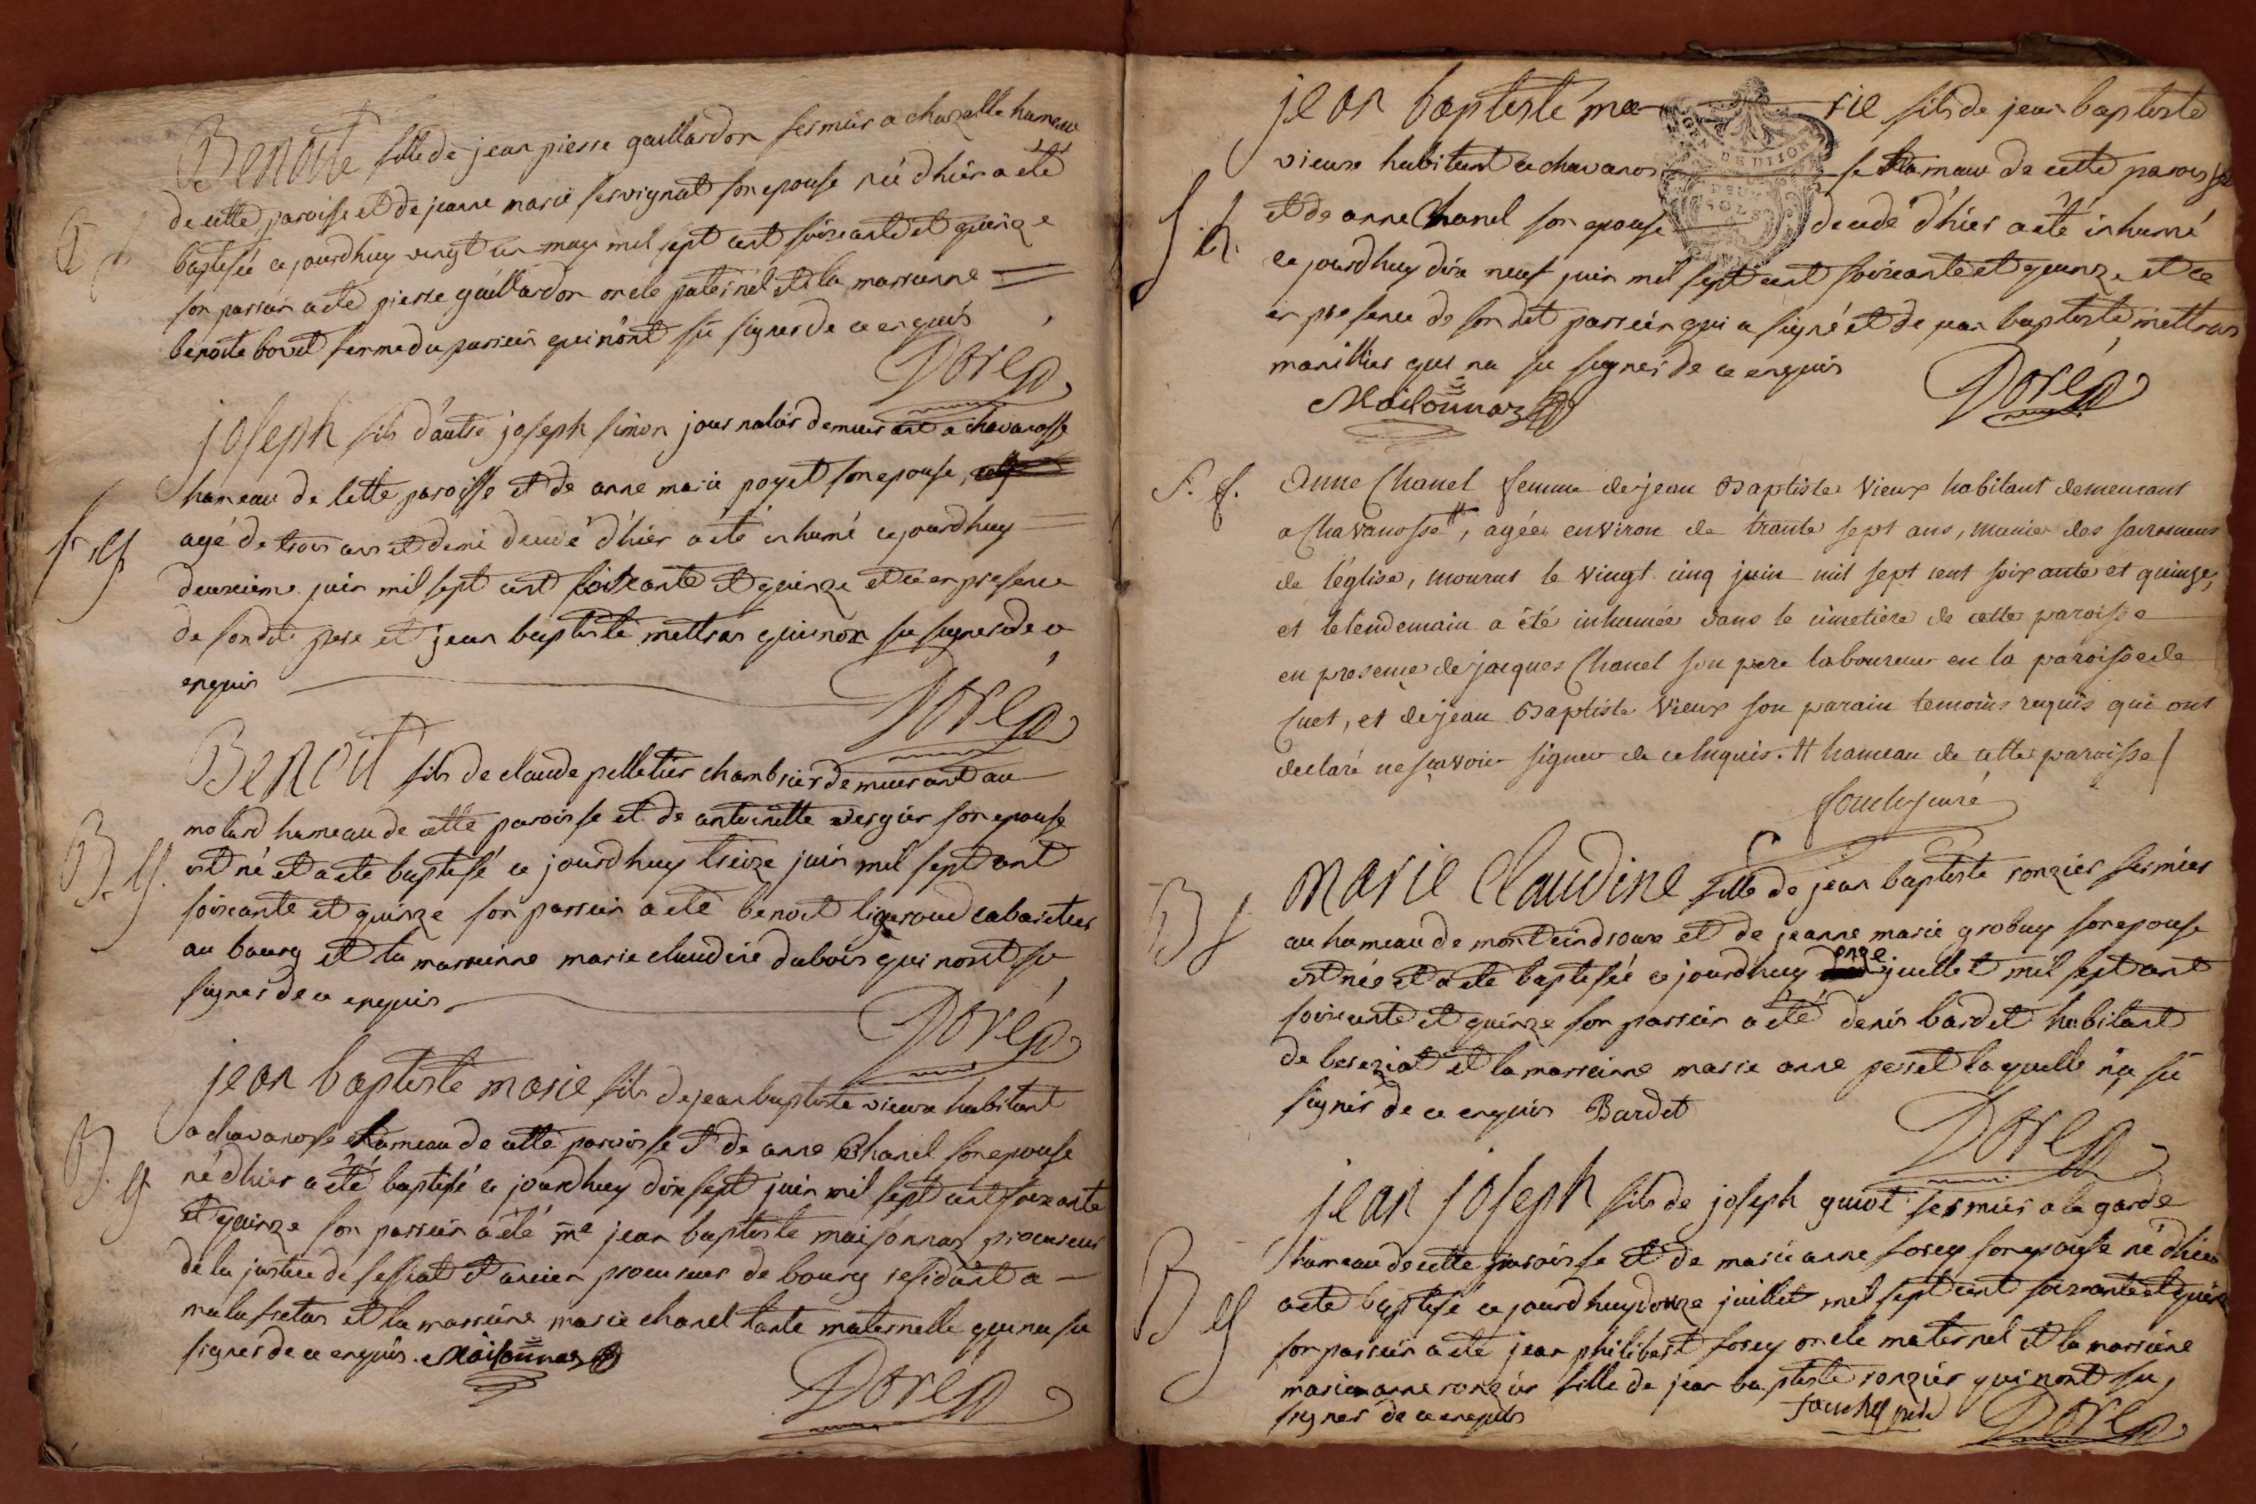 Benoite fille de jean pierre gaillardon fermier a chazelle hameau
de cette paroisse et de jeanne marie servignat son epouse née d'hier a été
baptisée ce jourdhuy vingt un may mil sept cent soixante et quinze
son parrain a eté pierre gaillardon oncle paternel et la marrainne
benoite bovet femme du parrein qui n'ont sü signer de ce enquis
Doré
joseph fils d'autre joseph simon journalier demeurant a chavanosse
hameau de cette paroisse et de anne marie poyet son epouse
agé de trois ans et demi decedé d'hier a été inhumé ce jourdhuy
deuxieme juin mil sept cent soixante et quinze et ce en presence
de son dit pere et jean baptiste mettras qui non su signer de ce
enquis
Doré
B. g.
Benoit fils de claude pelletier chambrier demeurant au
molard hameau de cette paroisse et de antoinette vergier son epouse
est né et a eté baptisé ce jourdhuy treize juin mil sept cent
soixante et quinze son parrein a eté benoit ligeroud cabaretier
au bourg et la marrainne marie claudine dubois qui n'ont su
signer de ce enquis
Doré
B. g.
jean baptiste marie fils de jean baptiste vieux habitant
a chavanosse hameau de cette paroisse et de anne Chanel son epouse
né d'hier a été baptisé ce jourdhuy dix sept juin mil sept cent soixante
et quinze son parrein a été me jean baptiste maisonnas procureur
de la justice de et ancien procureur de bourg residant a
malafretas et la marraine marie chanel tante maternelle qui na su
signer de ce enquis Maisonnas
Doré
jean baptiste marie fils de jean baptiste
vieux habitant a chavanosse hameau de cette paroisse
et de anne Chanel son epouse decedé d'hier a été inhumé
ce jourdhuy dix neuf juin mil sept cent soixante et quinze et ce
en presence de son dit parrein qui a signé et de jean baptiste mettras
manillier qui na su signer de ce enquis
Maisonnas Doré
S. f.
Anne Chanel femme de jean Baptiste Vieux habitant demeurant
a Chavanosse #, agée environ de trante sept ans, munie des sacremens
de l'église, mourut le vingt cinq juin mil sept cent soixante et quinze,
et le lendemain a été inhumée dans le cimetiere de cette paroisse
en presence de jacques Chanel son pere laboureur en la paroisse de
Cuet, et de jean Baptiste Vieux son parain temoins requis qui ont
declaré ne sçavoir signer de ce enquis. # hameau de cette paroisse
curé
B f
Marie Claudine fille de jean baptiste ronzier fermier
au hameau de et de jeanne marie grobuy son epouse
est née et a eté baptisée ce jourdhuy onze juillet mil sept cent
soixante et quinze son parrein a été denis bardet habitant
de bereziat et la marrainne marie anne peret laquelle n'a sü
signer de ce enquis Bardet
Doré
B g
jean joseph fils de joseph guiot fermier a la garde
hameau de cette paroisse et de marie anne forey son epouse né d'hier
a eté baptisé ce jourdhuy douze juillet mil sept cent soixante et quinze
son parrein a eté jean philibert forey oncle maternel et la marraine
marie anne ronzier fille de jean baptiste ronzier qui n'ont su
signer de ce enquis
Doré